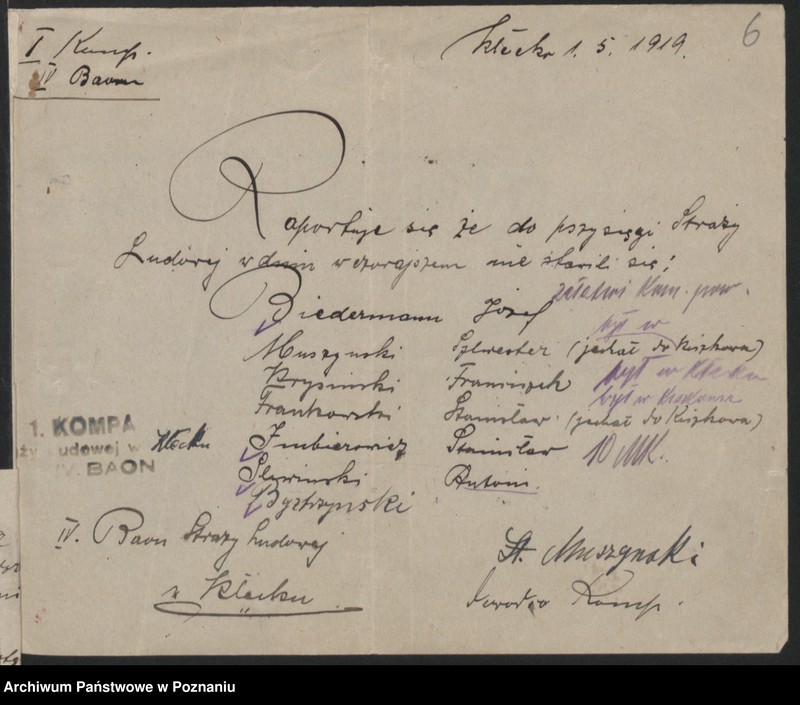 6
I Komp.
IV Baonu
Kłecko 1. 5. 1919.
Raportuje się że do pszysięgi Straży
Ludowej w dniu wczorajszem nie stawili się:
załatwi Kom. pow.
Biedermann Józef
był w
Muszynski Sylwester (jechał do Kiszkowa)
Krysinski Franciszek był w Kłecku
był w
Frankowski Stanisław (jechał do Kiszkowa)
Imbierowicz Stanisław 10 MK.
Sliwinski Antoni.
Bystrzynski
1. KOMPA
ży Ludowej w Kłecku
IV. BAON
IV. Baon Straży Ludowej
w Kłecku
St. Muszynski
dowodca Komp.
Archiwum Państwowe w Poznaniu